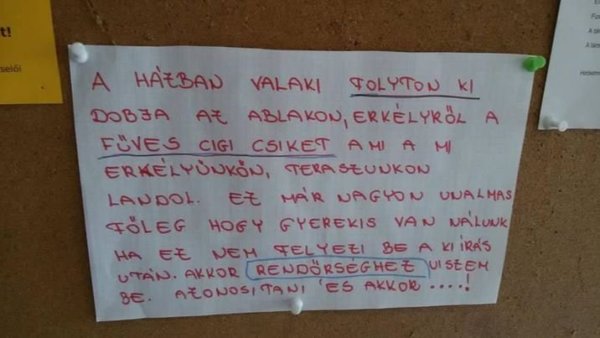 t!
selői
A HÁZBAN VALAKI FOLYTON KI
DOBJA AZ ABLAKON, ERKÉLYRŐL A
FÜVES CIGI CSIKET AMI A MI
ERKÉLYÜNKÖN, TERASZUNKON
LANDOL. EZ MÁR NAGYON UNALMAS
FŐLEG HOGY GYEREKIS VAN NÁLUNK
HA EZ NEM FELYEZI BE A KIÍRÁS
UTÁN. AKKOR RENDŐRSÉGHEZ VISZEM
BE. AZONOSITANI ÉS AKKOR ....!